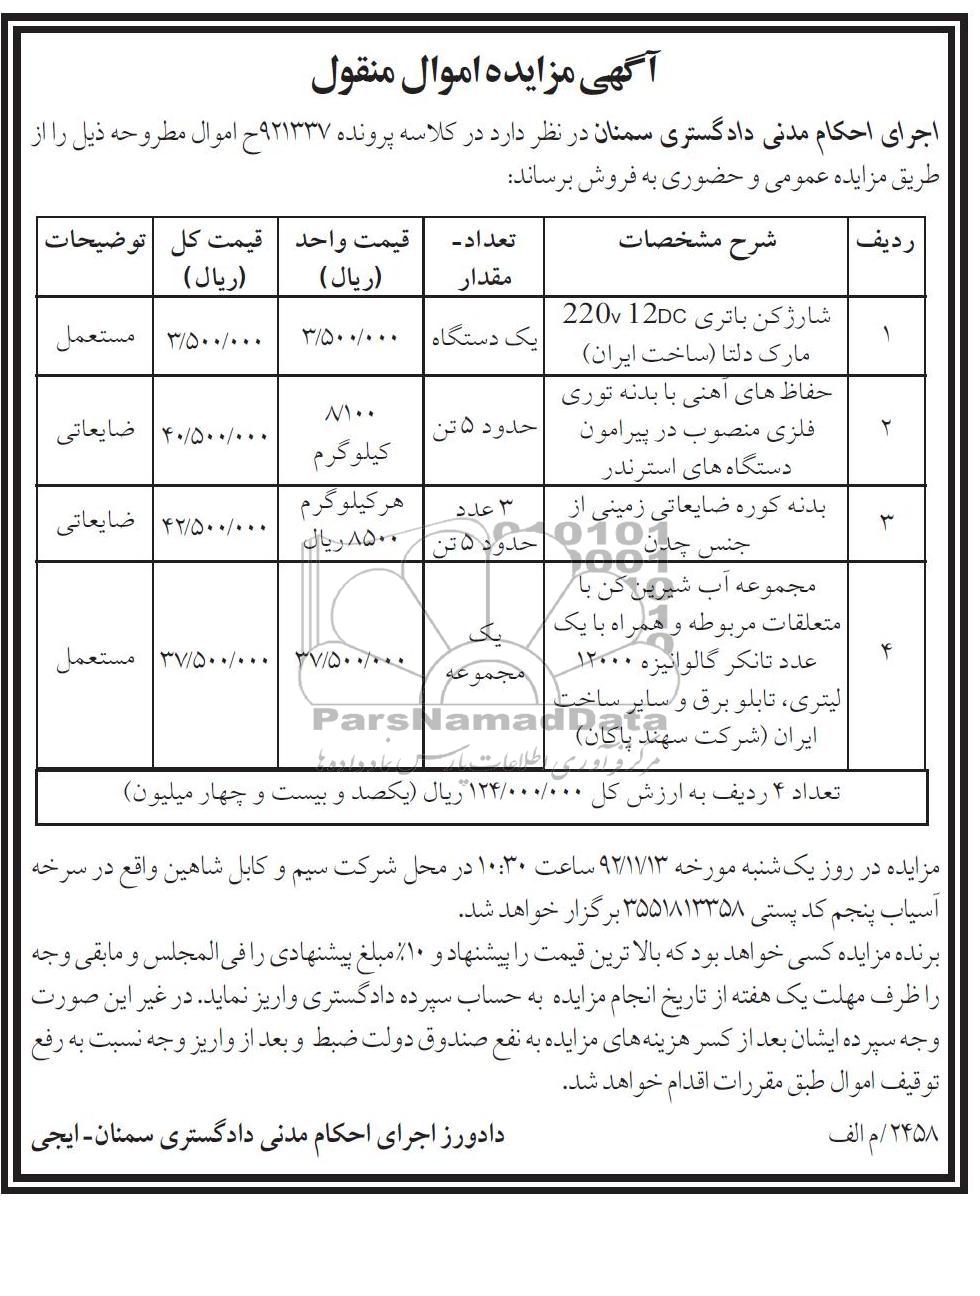 آگهی مزایده اموال منقول
اجرای احکام مدنی دادگستری سمنان در نظر دارد در کلاسه پرونده ۹۲۱۳۳۷ح اموال مطروحه ذیل را از
طریق مزایده عمومی و حضوری به فروش برساند:
ردیف شرح مشخصات تعداد- مقدار قیمت واحد (ریال) قیمت کل (ریال) توضیحات
۱ شارژکن باتری 220v 12DC مارک دلتا (ساخت ایران) یک دستگاه ۳/۵۰۰/۰۰۰ ۳/۵۰۰/۰۰۰ مستعمل
۲ حفاظ های آهنی با بدنه توری فلزی منصوب در پیرامون دستگاه های استرندر حدود ۵ تن ۸/۱۰۰ کیلوگرم ۴۰/۵۰۰/۰۰۰ ضایعاتی
۳ بدنه کوره ضایعاتی زمینی از جنس چدن ۳ عدد حدود ۵ تن هرکیلوگرم ۸۵۰۰ ریال ۴۲/۵۰۰/۰۰۰ ضایعاتی
۴ مجموعه آب شیرین کن با متعلقات مربوطه و همراه با یک عدد تانکر گالوانیزه ۱۲۰۰۰ لیتری، تابلو برق و سایر ساخت ایران (شرکت سهند پاکان) یک مجموعه ۳۷/۵۰۰/۰۰۰ ۳۷/۵۰۰/۰۰۰ مستعمل
ParsNamadData
مرکز فرآوری اطلاعات پارس نماد داده ها
تعداد ۴ ردیف به ارزش کل ۱۲۴/۰۰۰/۰۰۰ ریال (یکصد و بیست و چهار میلیون)
مزایده در روز یک‌شنبه مورخه ۹۲/۱۱/۱۳ ساعت ۱۰:۳۰ در محل شرکت سیم و کابل شاهین واقع در سرخه
آسیاب پنجم کد پستی ۳۵۵۱۸۱۳۳۵۸ برگزار خواهد شد.
برنده مزایده کسی خواهد بود که بالا ترین قیمت را پیشنهاد و ۱۰٪ مبلغ پیشنهادی را فی‌المجلس و مابقی وجه
را ظرف مهلت یک هفته از تاریخ انجام مزایده به حساب سپرده دادگستری واریز نماید. در غیر این صورت
وجه سپرده ایشان بعد از کسر هزینه‌های مزایده به نفع صندوق دولت ضبط و بعد از واریز وجه نسبت به رفع
توقیف اموال طبق مقررات اقدام خواهد شد.
۲۴۵۸/م الف
دادورز اجرای احکام مدنی دادگستری سمنان- ایجی